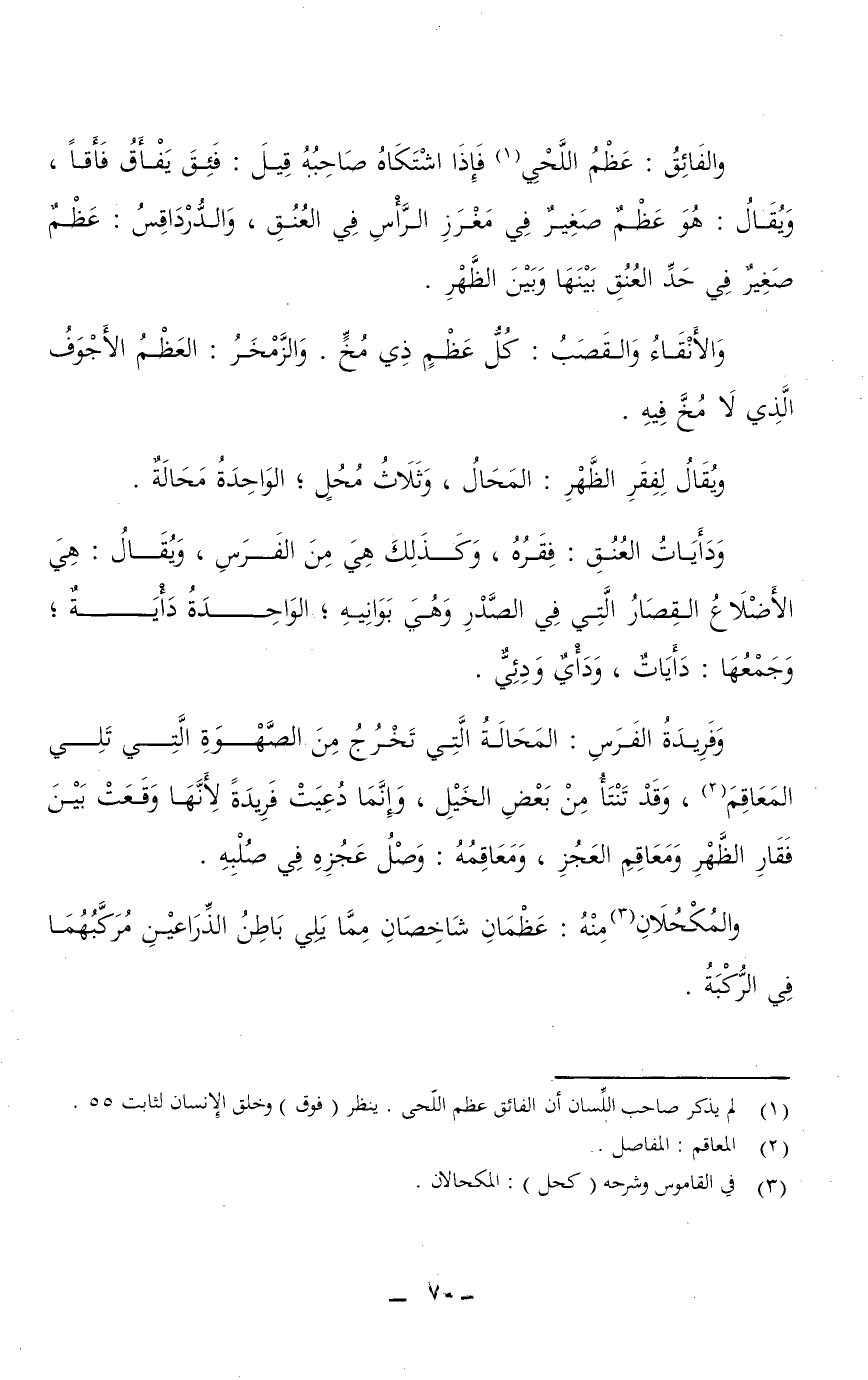 والفَائِقُ : عَظْمُ اللَّحْيِ(١) فَإِذَا اشْتَكَاهُ صَاحِبُهُ قِيلَ : فَئِقَ يَفْأَقُ فَأَقاً ،
وَيُقَالُ : هُوَ عَظْمٌ صَغِيرٌ فِي مَغْرَزِ الرَّأْسِ فِي العُنُقِ ، وَالدُّرْدَاقِسُ : عَظْمٌ
صَغِيرٌ فِي حَدِّ العُنُقِ بَيْنَهَا وَبَيْنَ الظَّهْرِ .
وَالأَنْقَاءُ وَالقَصَبُ : كُلُّ عَظْمٍ ذِي مُخٍّ . وَالزَّمْخَرُ : العَظْمُ الأَجْوَفُ
الَّذِي لَا مُخَّ فِيهِ .
ويُقَالُ لِفِقَرِ الظَّهْرِ : المَحَالُ ، وَثَلَاثُ مُحُلٍ ؛ الوَاحِدَةُ مَحَالَةٌ .
وَدَأَيَاتُ العُنُقِ : فِقَرُهُ ، وَكَذَلِكَ هِيَ مِنَ الفَرَسِ ، وَيُقَالُ : هِيَ
الأَضْلَاعُ القِصَارُ الَّتِي فِي الصَّدْرِ وَهُيَ بَوَانِيهِ ؛ الوَاحِدَةُ دَأْيَةٌ ؛
وَجَمْعُهَا : دَأَيَاتٌ ، وَدَأْيٌ وَدِئِيٌّ .
وَفَرِيدَةُ الفَرَسِ : المَحَالَةُ الَّتِي تَخْرُجُ مِنَ الصَّهْوَةِ الَّتِي تَلِي
المَعَاقِمَ(٢) ، وَقَدْ تَنْتَأُ مِنْ بَعْضِ الخَيْلِ ، وَإِنَّمَا دُعِيَتْ فَرِيدَةً لِأَنَّهَا وَقَعَتْ بَيْنَ
فَقَارِ الظَّهْرِ وَمَعَاقِمِ العَجُزِ ، وَمَعَاقِمُهُ : وَصْلُ عَجُزِهِ فِي صُلْبِهِ .
والمُكْحُلَانِ(٣) مِنْهُ : عَظْمَانِ شَاخِصَانِ مِمَّا يَلِي بَاطِنُ الذِّرَاعَيْنِ مُرَكَّبُهُمَا
فِي الرُّكْبَةُ .
(١) لم يذكر صاحب اللّسان أن الفائق عظم اللّحى . ينظر ( فوق ) وخلق الإنسان لثابت ٥٥ .
(٢) المعاقم : المفاصل .
(٣) في القاموس وشرحه ( كحل ) : المكحالان .
ـ ٧٠ ـ